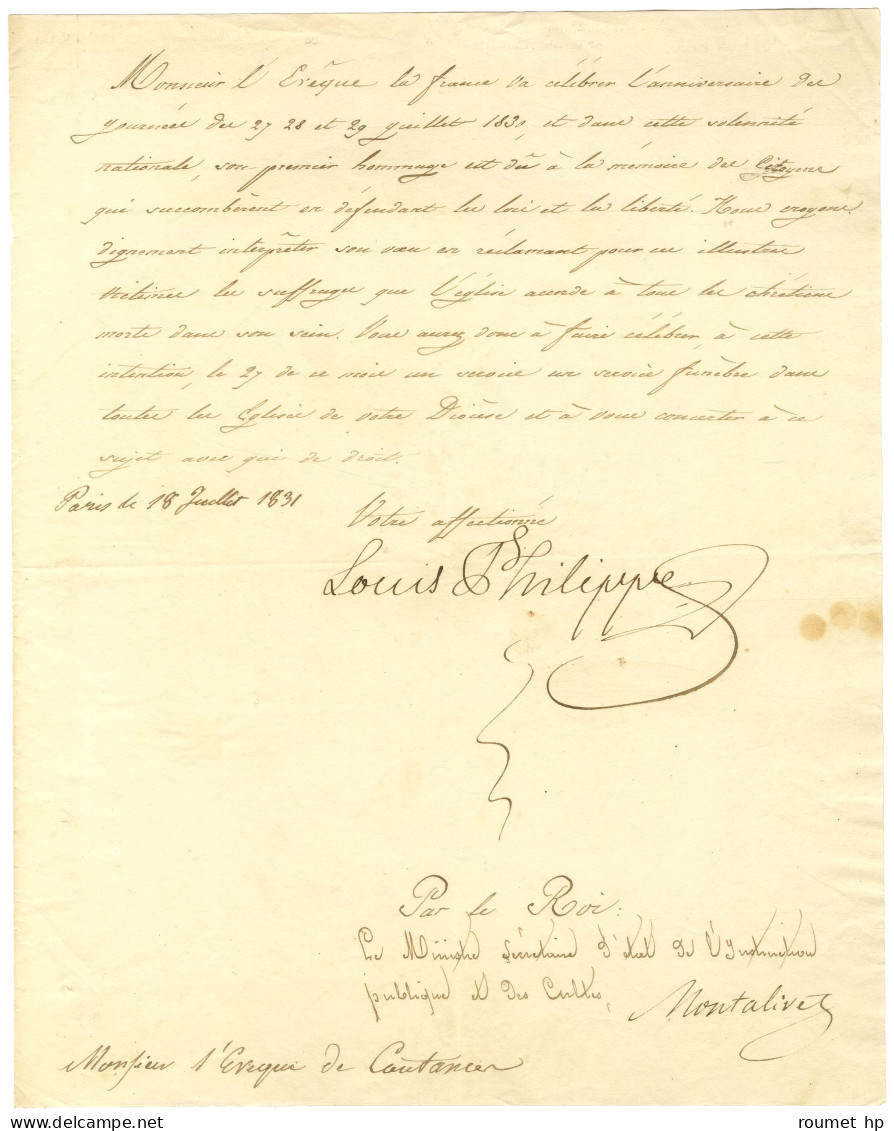 Monsieur l'Evêque la france va célébrer l'anniversaire des
journées des 27 28 et 29 juillet 1830, et dans cette solennité
nationale, son premier hommage est dû à la mémoire des Citoyens
qui succombèrent en défendant les lois et la liberté. Nous croyons
dignement interprêter son vœu en réclamant pour ces illustres
victimes les suffrages que l'église accorde à tous les chrétiens
morts dans son sein. Vous aurez donc à faire célébrer, à cette
intention, le 27 de ce mois un service un service funèbre dans
toutes les Eglises de votre Diocèse et à vous concerter à ce
sujet avec qui de droit.
Paris le 18 Juillet 1831
Votre affectionné
Louis Philippe
Par le Roi:
Le Ministre Secrétaire d'état de l'Instruction
publique et des Cultes,
Montalivet
Monsieur l'Eveque de Coutances
roumet hp